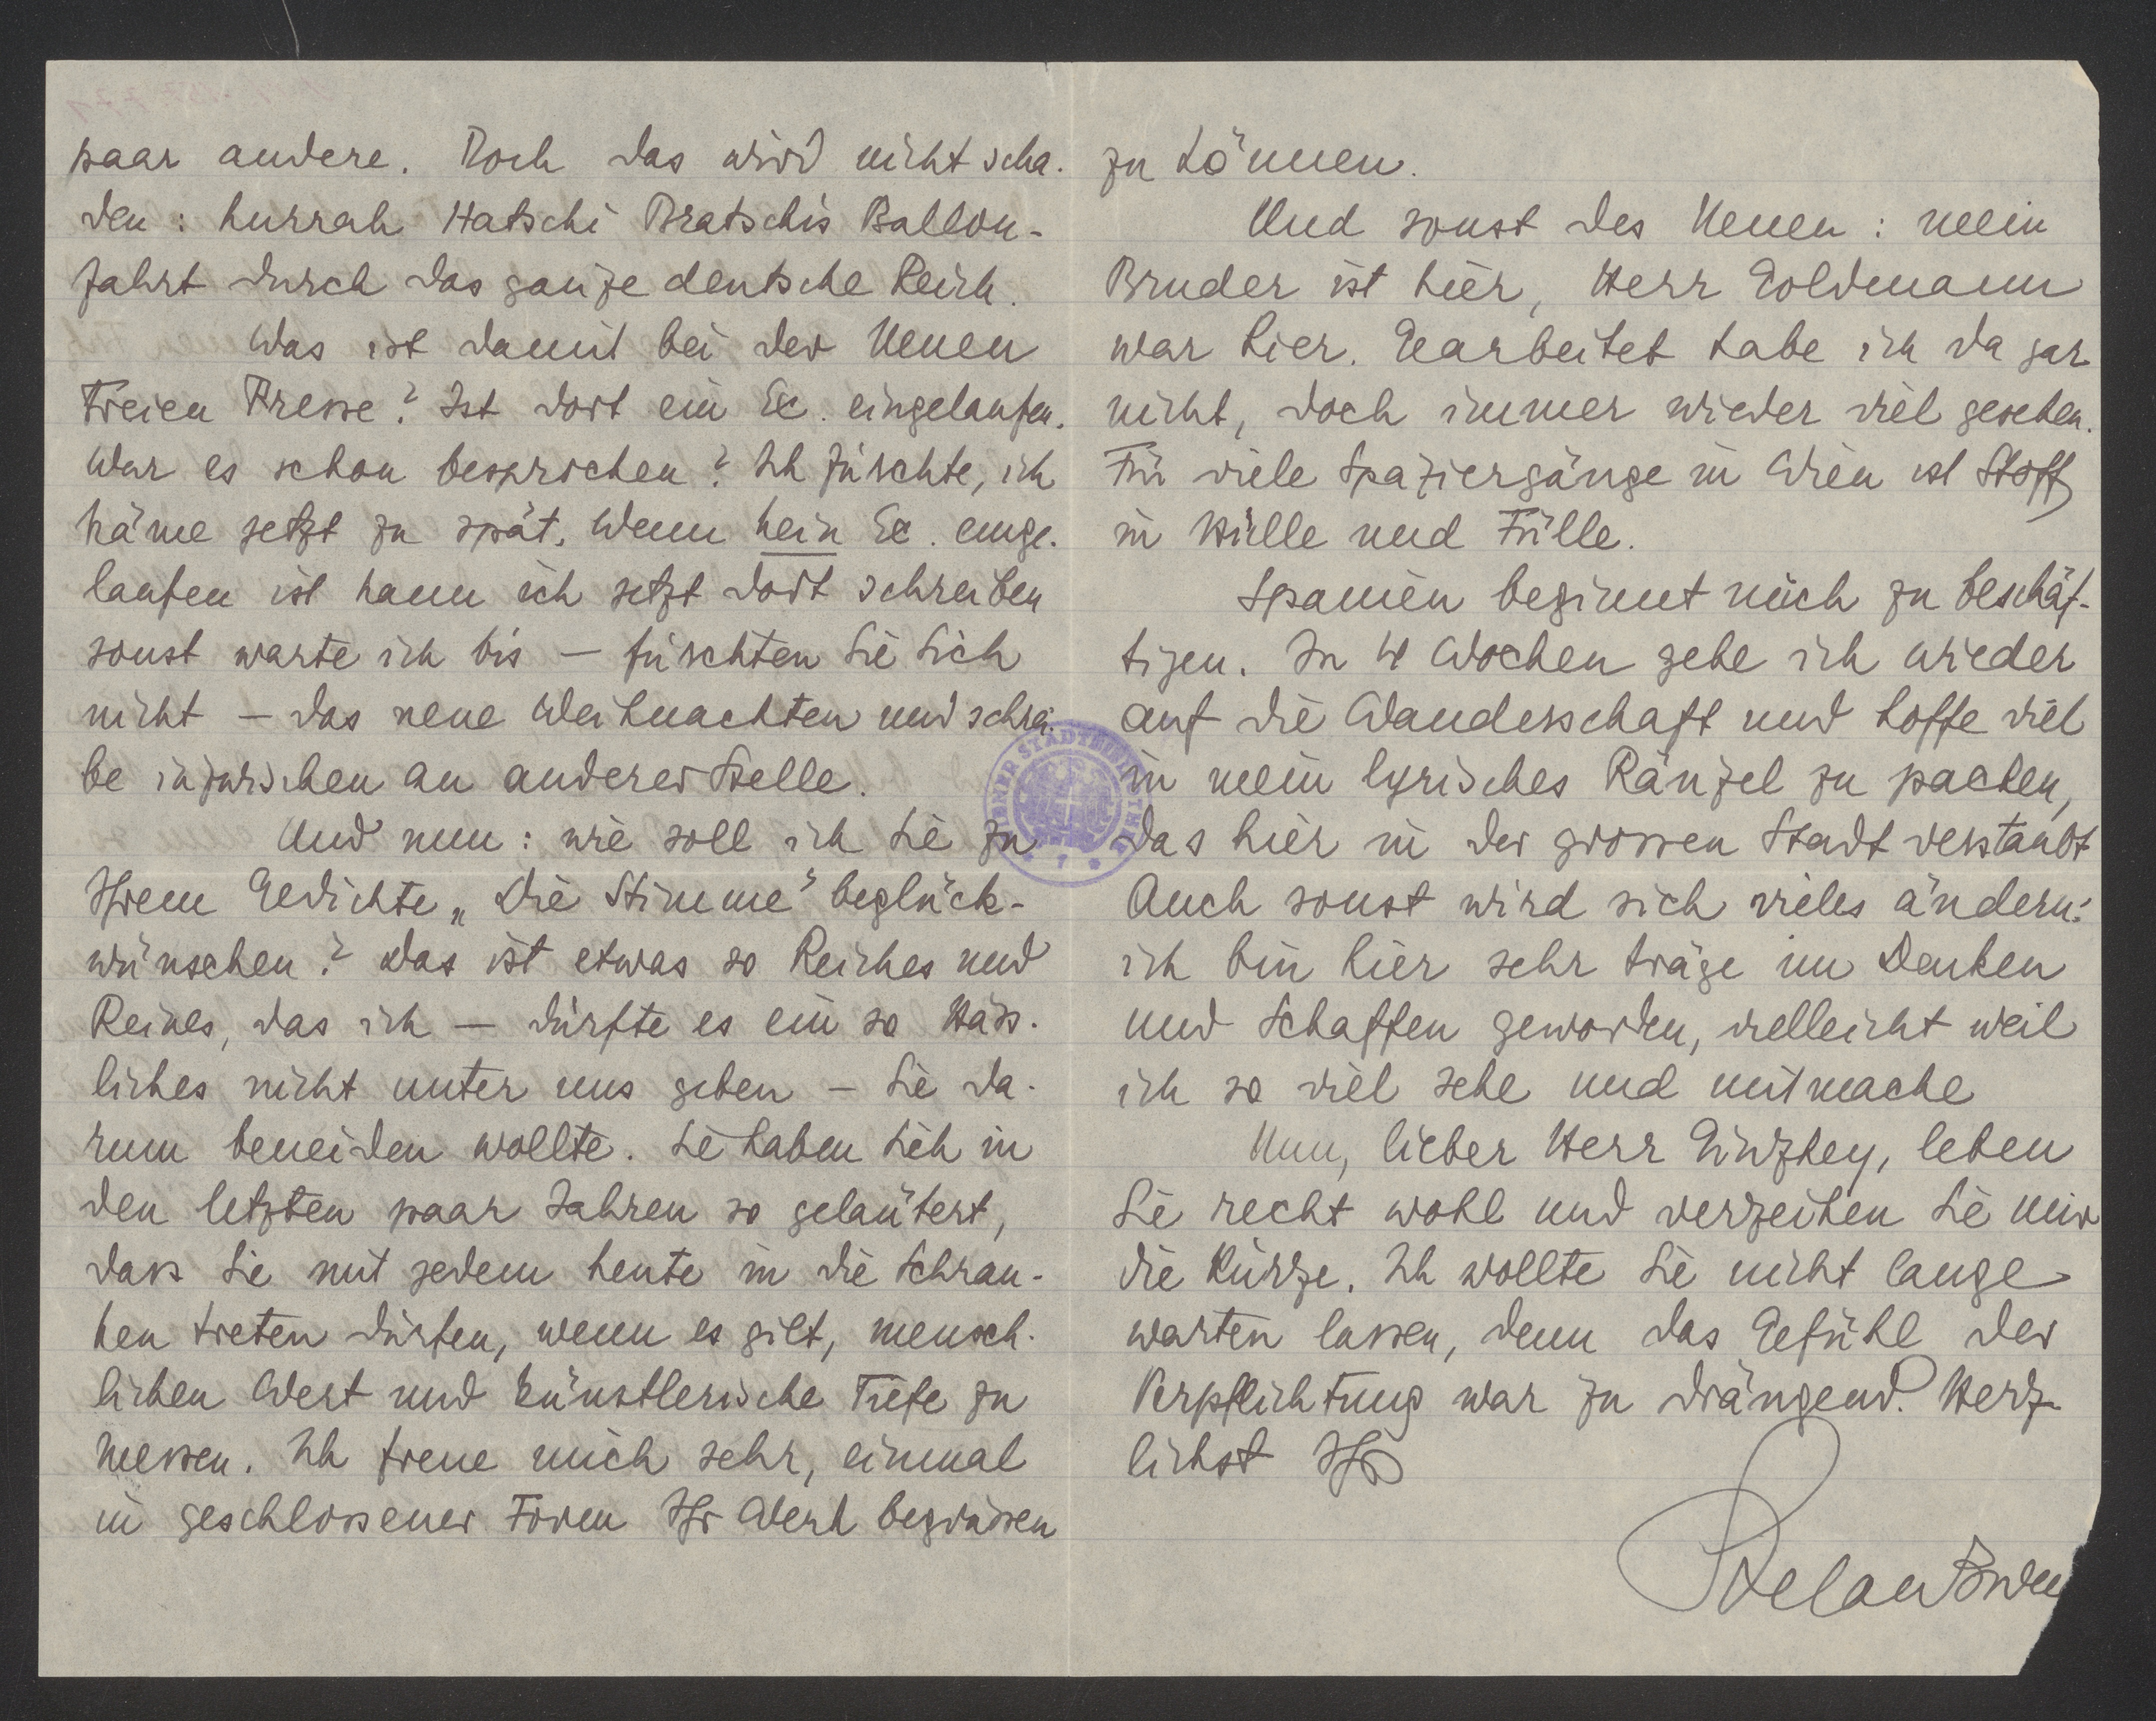 paar andere. Doch das wird nicht scha-
den: hurrah Hatschi Bratschis Ballon-
fahrt durch das ganze deutsche Reich.
Was ist damit bei der Neuen
Freien Presse? Ist dort ein Ex. eingelaufen.
War es schon besprochen? Ich fürchte, ich
käme jetzt zu spät. Wenn kein Ex. einge-
laufen ist kann ich jetzt dort schreiben
sonst warte ich bis — fürchten Sie Sich
nicht — das neue Weihnachten und schrei-
be inzwischen an anderer Stelle.
Und nun: wie soll ich Sie zu
Ihrem Gedichte „Die Stimme" beglück-
wünschen? Das ist etwas so Reiches und
Reines, das ich — dürfte es ein so Häss-
liches nicht unter uns geben — Sie da-
rum beneiden wollte. Sie haben Sich in
den letzten paar Jahren so geläutert,
dass Sie mit jedem heute in die Schran-
ken treten dürfen, wenn es gilt, mensch-
lichen Wert und künstlerische Tiefe zu
messen. Ich freue mich sehr, einmal
in geschlossener Form Ihr Werk begrüssen
zu können.
Und sonst des Neuen: mein
Bruder ist hier, Herr Goldmann
war hier. Gearbeitet habe ich da gar
nicht, doch immer wieder viel gesehen.
Für viele Spaziergänge in Wien ist Stoff
in Hülle und Fülle.
Spanien beginnt mich zu beschäf-
tigen. In 4 Wochen gehe ich wieder
auf die Wanderschaft und hoffe viel
in mein lyrisches Ränzel zu packen,
das hier in der grossen Stadt verstaubt
Auch sonst wird sich vieles ändern:
ich bin hier sehr träge im Denken
und Schaffen geworden, vielleicht weil
ich so viel sehe und mitmache
Nun, lieber Herr Ginzkey, leben
Sie recht wohl und verzeihen Sie mir
die Kürze. Ich wollte Sie nicht lange
warten lassen, denn das Gefühl der
Verpflichtung war zu drängend. Herz-
lichst Ihr